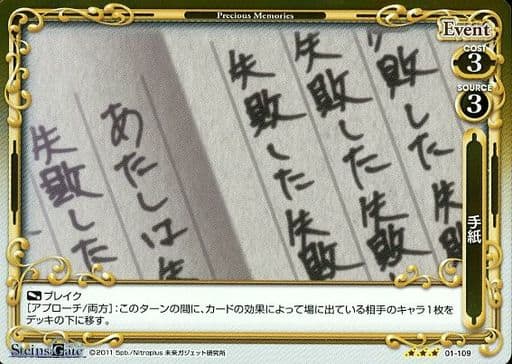 Precious Memories
Event
COST
3
SOURCE
3
手紙
り敗した失
失敗した失敗
失敗した失敗
あたしは失
失敗した
ブレイク
[アプローチ/両方]：このターンの間に、カードの効果によって場に出ている相手のキャラ1枚を
デッキの下に移す。
Steins;Gate
©2011 5pb./Nitroplus 未来ガジェット研究所
★★★
01-109